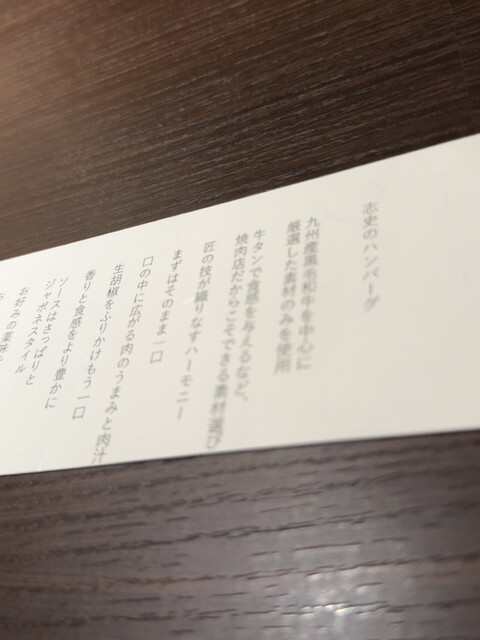 志史のハンバーグ
九州産黒毛和牛を中心に
厳選した素材のみを使用
牛タンで食感を与えるなど、
焼肉店だからこそできる素材選び
匠の技が織りなすハーモニー
まずはそのまま一口
口の中に広がる肉のうまみと肉汁
生胡椒をふりかけもう一口
香りと食感をより豊かに
ソースはさっぱりと
ジャポネスタイル
お好みの薬味